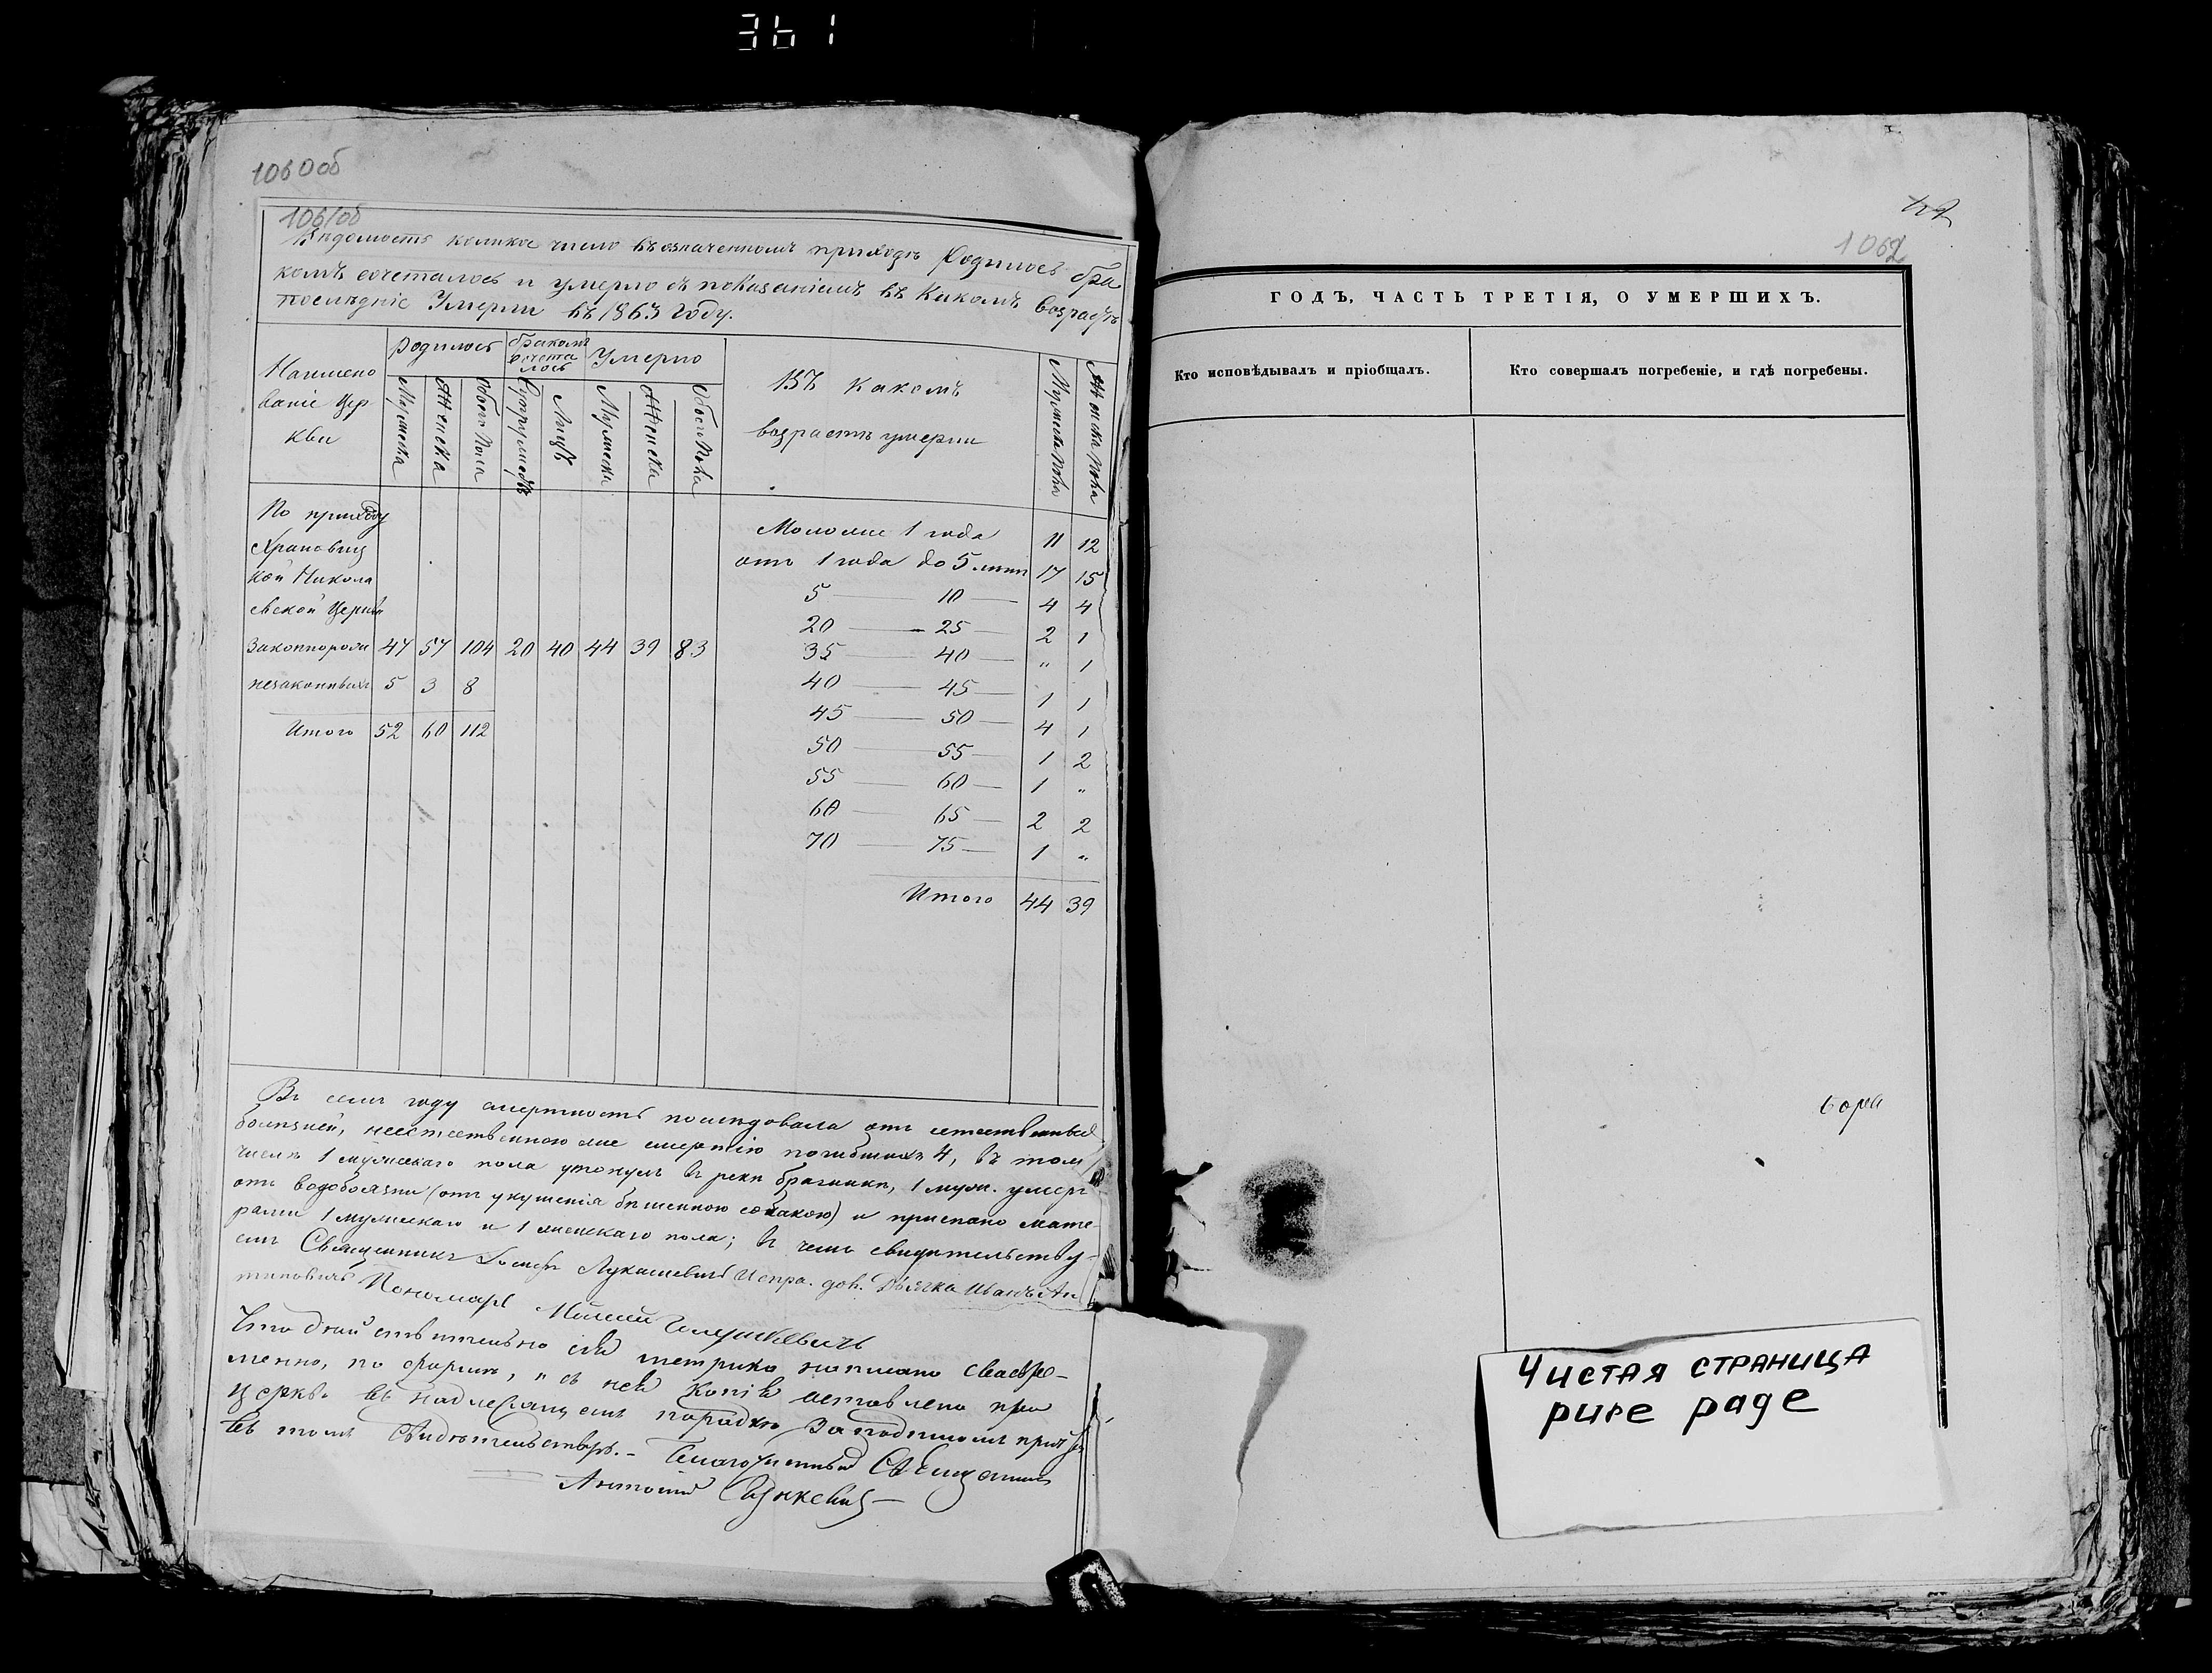 361
1060об
1061об
Ведомость коликое число въ означенномъ приходѣ Родилось бра
комъ сочеталось и умерло съ показаніемъ въ Какомъ возрастѣ
послѣдніе Умерли въ 1863 Году.
Наимено
ваніе Цер
кви
Родилось
бракомъ
сочета
лось
Умерло
Въ какомъ
возрастѣ умерли
Мужеска
Женска
Обоего Пола
Супружествъ
Лицъ
Мужеска
Женска
Обоего Пола
Мужеска Пола
Женска Пола
По приходу
Храповиц
кой Никола
евской Церкви
Законнорож 47 57 104 20 40 44 39 83
незаконныхъ 5 3 8
Итого 52 60 112
Моложе 1 года 11 12
отъ 1 года до 5 лѣтъ 17 15
5 — 10 — 4 4
20 — 25 — 2 1
35 — 40 — " 1
40 — 45 — 1 1
45 — 50 — 4 1
50 — 55 — 1 2
55 — 60 — 1 "
60 — 65 — 2 2
70 — 75 — 1 "
Итого 44 39
Въ семъ году смертность послѣдовала отъ естественныхъ
болѣзней, неестественною же смертію погибшихъ 4, въ томъ
числѣ 1 мужескаго пола утонулъ въ рекѣ брагинкѣ, 1 муж. умеръ
отъ водобоязни (отъ укушенія бѣшенною собакою) и приспано мате-
рями 1 мужескаго и 1 женскаго пола; въ чемъ свидѣтельству-
емъ Священникъ Іосифъ Лукашевичъ Испра. дол. Дьячка Иванъ Ан
типовичъ Пономарь
Что действительно сія метрика написана своевре-
менно, по формѣ, и съ ней Копія оставлена при
церкви въ надлежащемъ порядкѣ За подписомъ причта
въ томъ Свидѣтельствую. – Благочинный Священникъ
Антоній
1062
ГОДЪ, ЧАСТЬ ТРЕТІЯ, О УМЕРШИХЪ.
Кто исповѣдывалъ и пріобщалъ.
Кто совершалъ погребеніе, и гдѣ погребены.
Чистая страница
pure page